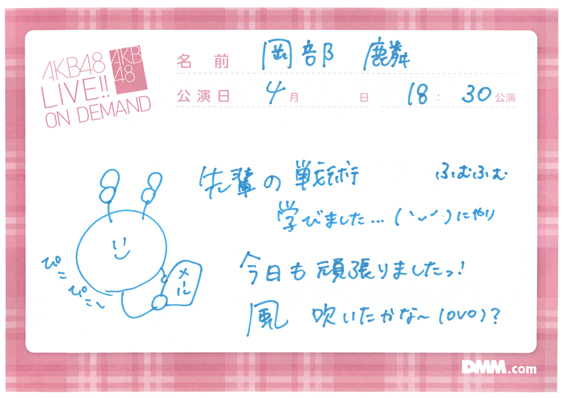 AKB48
LIVE!!
ON DEMAND
AKB
48
名前 岡部 麟
公演日 4月 日 18:30公演
先輩の戦術
ふむふむ
学びました…(˙◡˙)にやり
ぴこ
ぴこ〜
メール
今日も頑張りましたっ!
風 吹いたかな〜(OVO)?
DMM.com